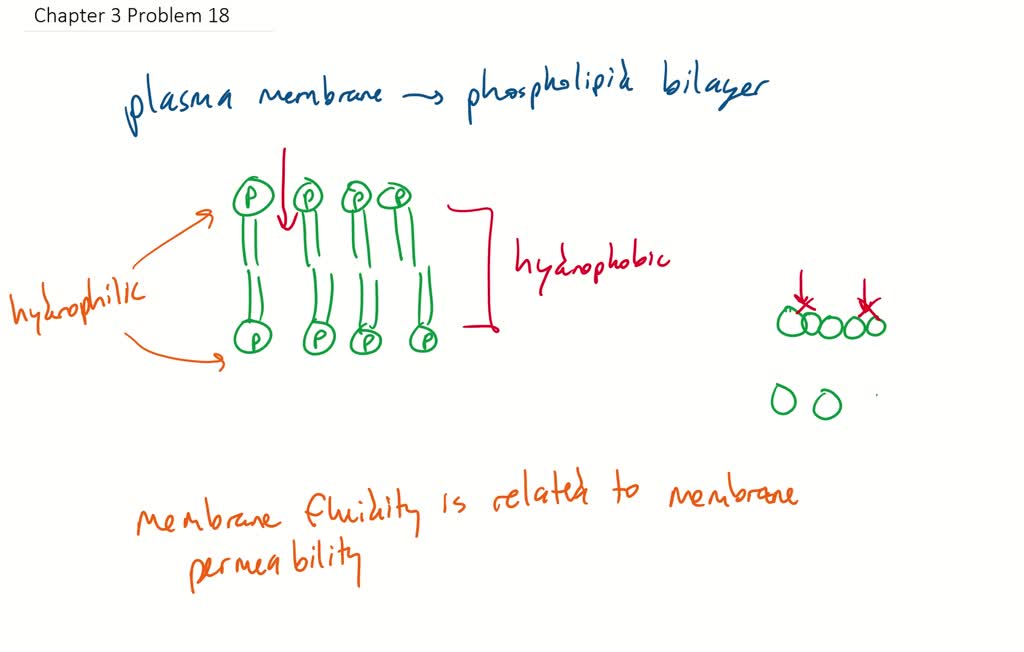 Chapter 3 Problem 18
plasma membrane → phospholipid bilayer
P P P P
hydrophobic
hydrophilic
P P P P
membrane fluidity is related to membrane
permeability